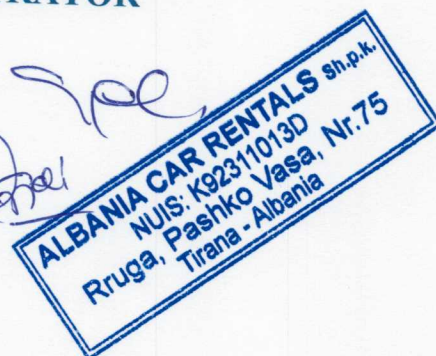 ALBANIA CAR RENTALS sh.p.k.
NUIS: K92311013D
Rruga, Pashko Vasa, Nr.75
Tirana - Albania